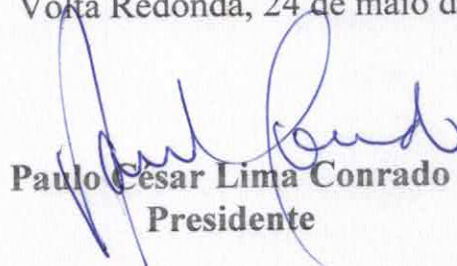 Volta Redonda, 24 de maio d
Paulo César Lima Conrado
Presidente